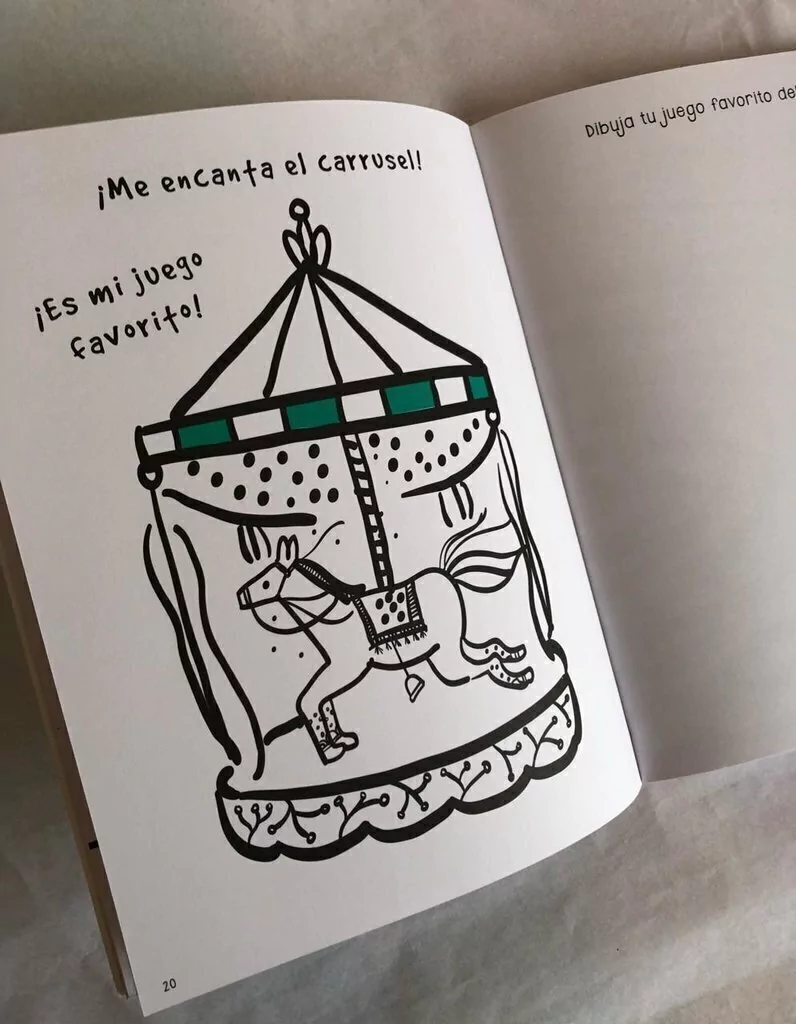 ¡Me encanta el carrusel!
¡Es mi juego
favorito!
20
Dibuja tu juego favorito del